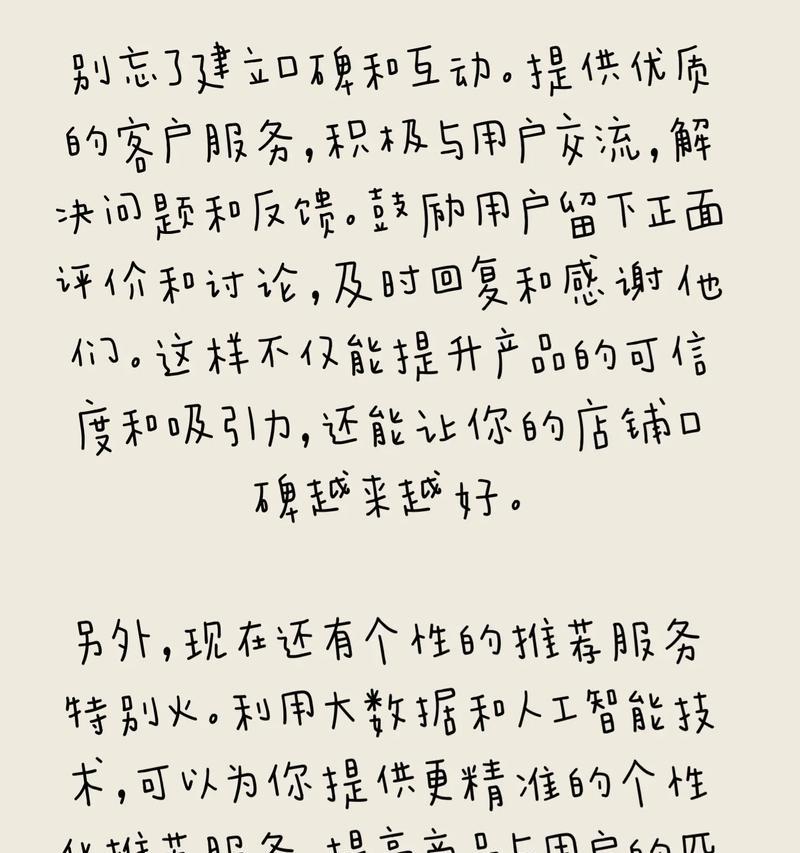 别忘了建立口碑和互动。提供优质
的客户服务,积极与用户交流,解
决问题和反馈。鼓励用户留下正面
评价和讨论,及时回复和感谢他
们。这样不仅能提升产品的可信
度和吸引力,还能让你的店铺口
碑越来越好。
另外,现在还有个性的推荐服务
特别火。利用大数据和人工智能技
术,可以为你提供更精准的个性
化推荐服务,提高产品与用户的匹